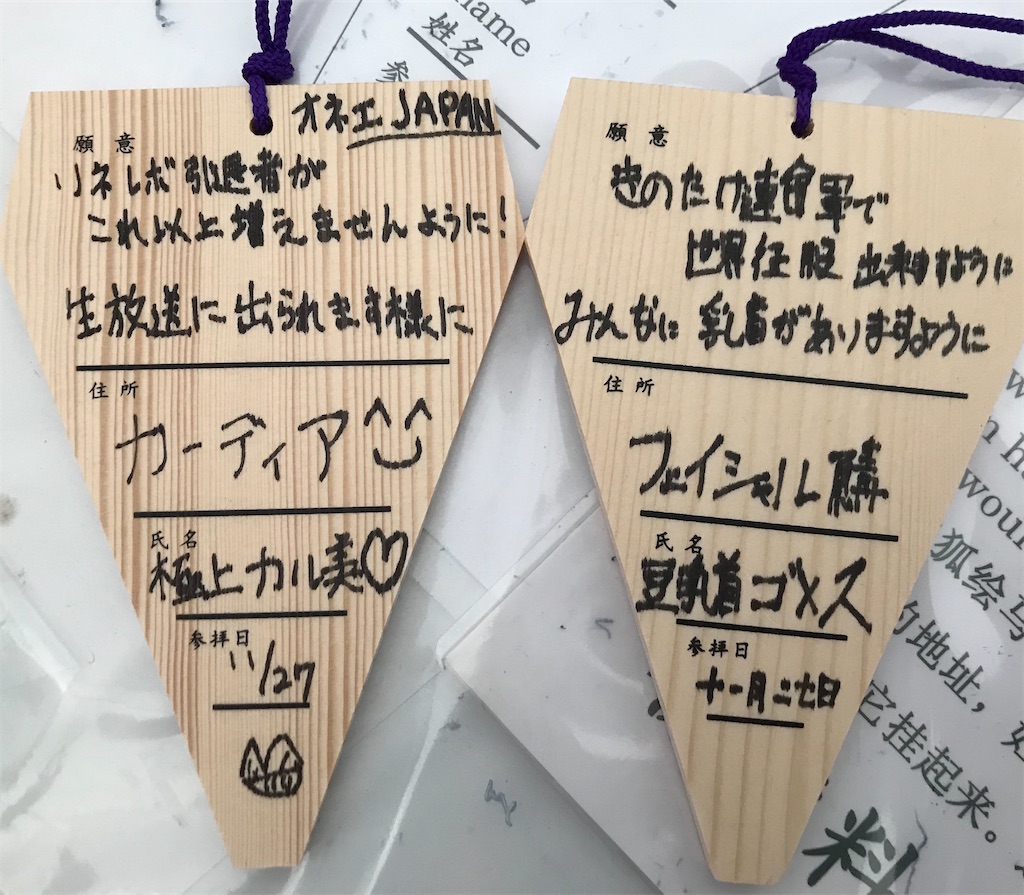 name
姓名
参
オネエ JAPAN
願意
リネレボ引退者が
これ以上増えませんように!
生放送に出られます様に
住所
カーディア
氏名
極上カル美♡
参拝日
11/27
願意
きのたけ連合軍で
世界征服出来ますように
みんなに乳首がありますように
住所
フェイシャル購
氏名
豆乳首ゴメス
参拝日
十一月二七日
would
狐绘马
的地址,
它挂起来。
料